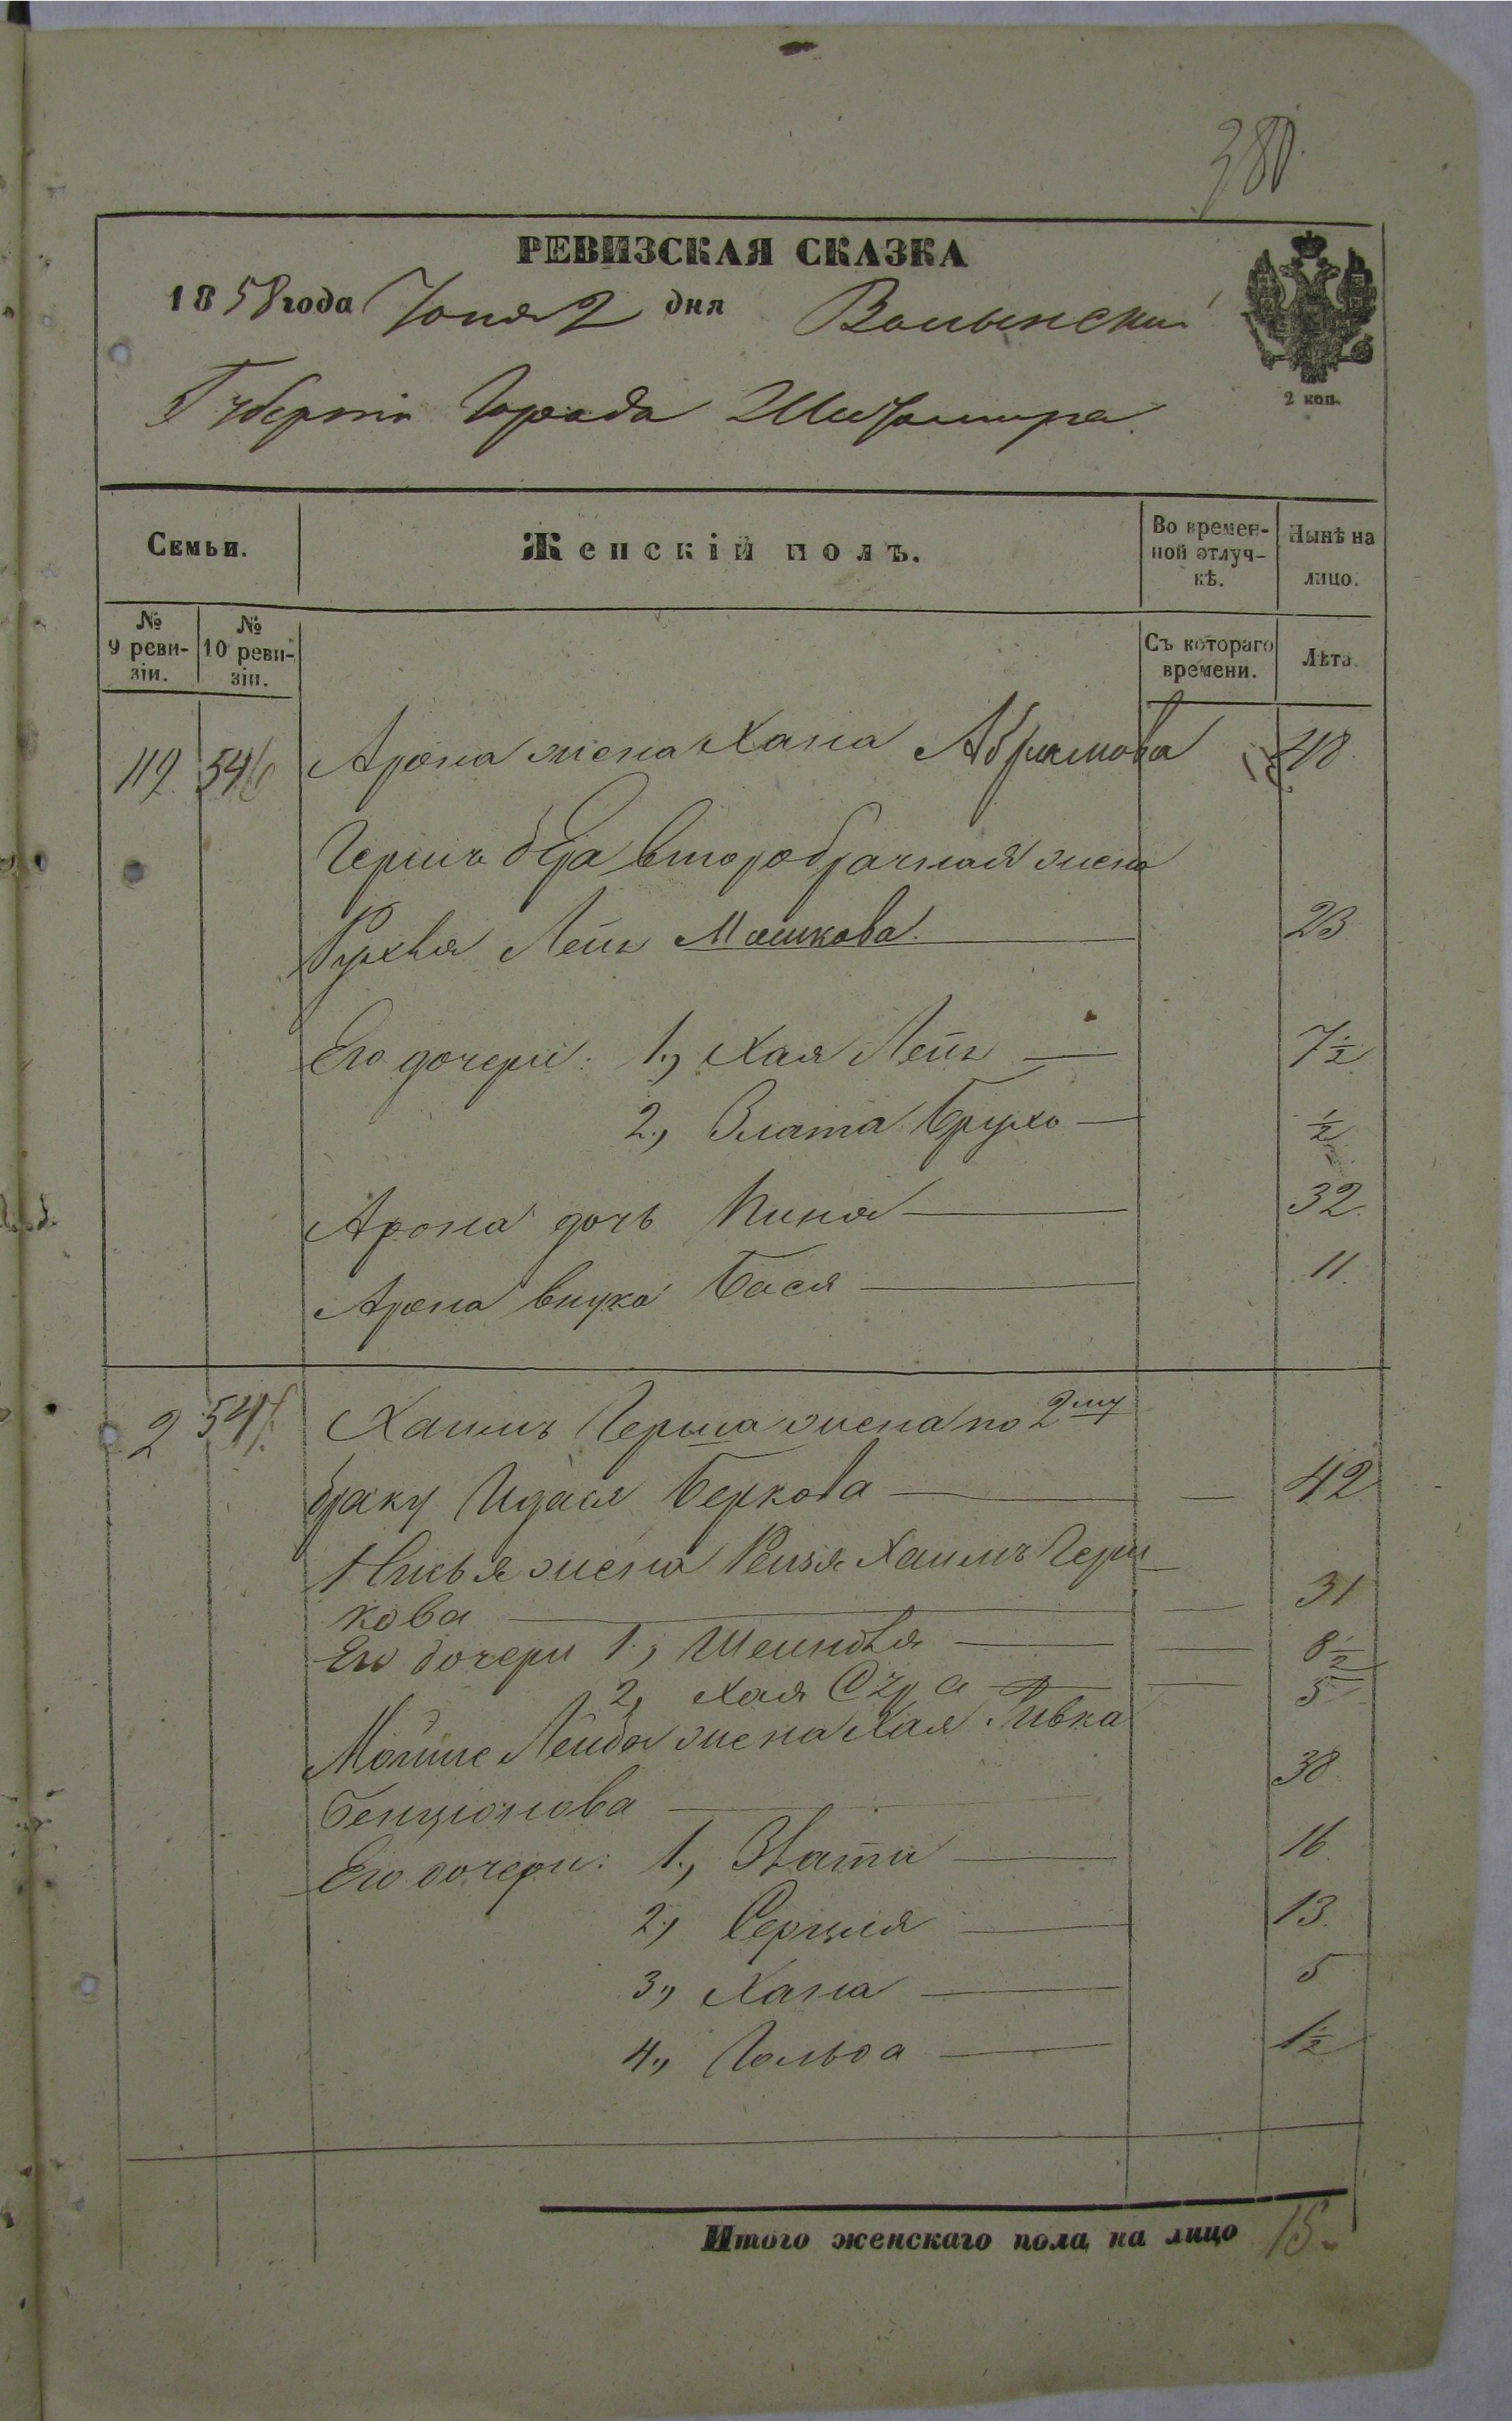 380.
РЕВИЗСКАЯ СКАЗКА
1858 года Іюня 2 дня Волынской
Губерніи Города Житомира
2 коп.
Семьи.
Женскій полъ.
Во времен-
ной отлуч-
кѣ.
Нынѣ на
лицо.
№
9 реви-
зіи.
№
10 реви-
зіи.
Съ котораго
времени.
Лѣта.
119 546 Арона жена Хана Абрамова 48
Гершъ Бера второбрачная жена
Рухля Лея Мошкова. 23
Его дочери: 1., Хая Лея 7½
2., Злата Бруха ½
Арона дочь 32.
Арона внука Бася 11.
2 547. Хаимъ Герша жена по 2му
браку Идася Беркова 42
жена Рейзя Хаимъ Герш
кова 31
Его дочери 1., Шейндля 8½
2, Хая Сура 5
Мойше Лейба жена Хая Ривка
Бенціонова 38.
Его дочери: 1., Злати 16
2., Серцля 13.
3., Хана 5
4., Гольда 1½
Итого женскаго пола на лицо 15.